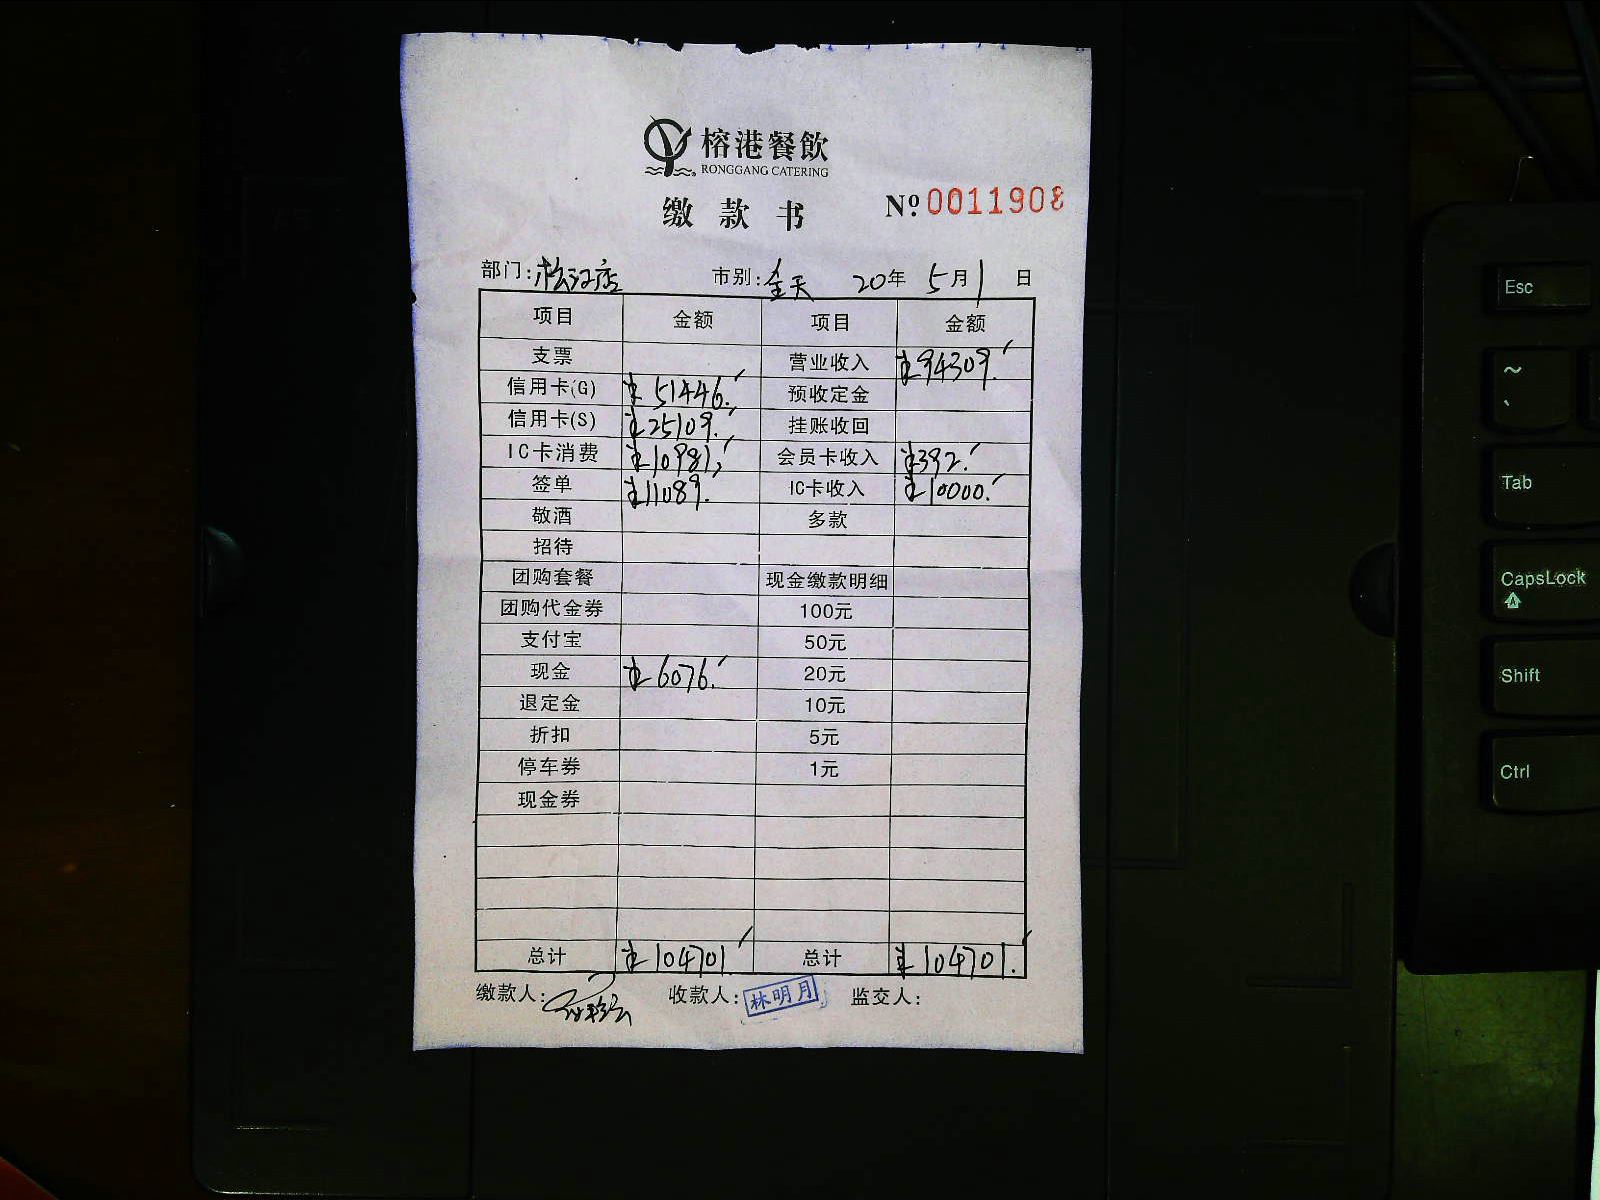 榕港餐飲
RONGGANG CATERING
缴款书 Nº 0011908
部门：松江店 市别：全天 20年 5月1日
项目 金额 项目 金额
支票 营业收入 ¥94309.
信用卡(G) ¥51446. 预收定金
信用卡(S) ¥25109. 挂账收回
IC卡消费 ¥10981. 会员卡收入 ¥392.
签单 ¥11089. IC卡收入 ¥10000.
敬酒 多款
招待
团购套餐 现金缴款明细
团购代金券 100元
支付宝 50元
现金 ¥6076. 20元
退定金 10元
折扣 5元
停车券 1元
现金券
总计 ¥104701 总计 ¥104701.
缴款人： 收款人：林明月 监交人：
Esc
~
Tab
CapsLock
Shift
Ctrl